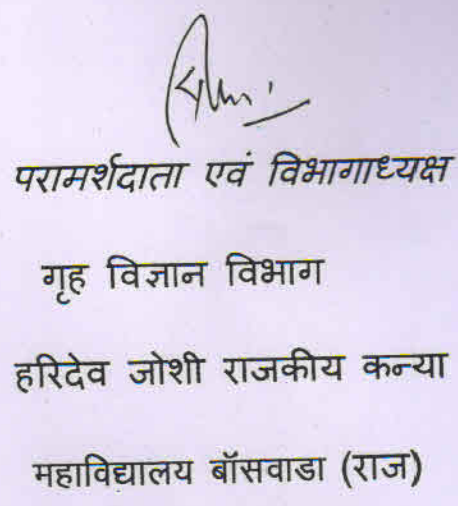 परामर्शदाता एवं विभागाध्यक्ष
गृह विज्ञान विभाग
हरिदेव जोशी राजकीय कन्या
महाविद्यालय बॉसवाडा (राज)